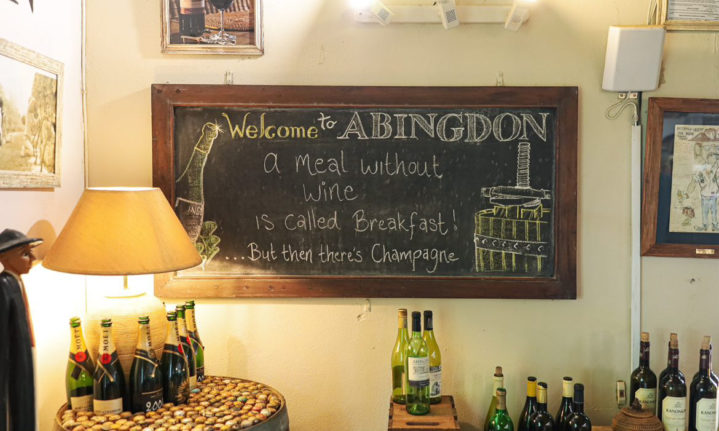 Welcome to ABINGDON
a Meal without
wine
is called Breakfast!
...But then there's Champagne
MOËT
MOËT
KANONKOP
KANONKOP